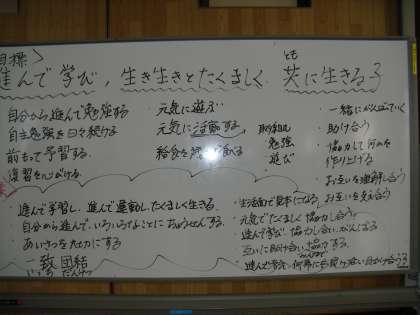 目標>
進んで学び、生き生きとたくましく 共に生きる子
とも
自分から進んで勉強する
自主勉強を日々続ける
前もって予習する
復習を心がける
・元気に遊ぶ
元気に活動する
給食を 食べる
取組
勉強
遊び
・一緒にがんばっていく
・助け合う
・協力して何かを
作り上げる
お互いを理解し合う
お互いを支え合う
・進んで学習し、進んで運動し、たくましく生きる。
・自分から進んで、いろいろなことにちょうせんする。
あいさつをたがいにする
一致団結
いっち だんけつ
・生活面で見本になる
・元気でたくましく協力し合う
進んで学び 協力し合い、がんばる
互いに助け合い 協力する。